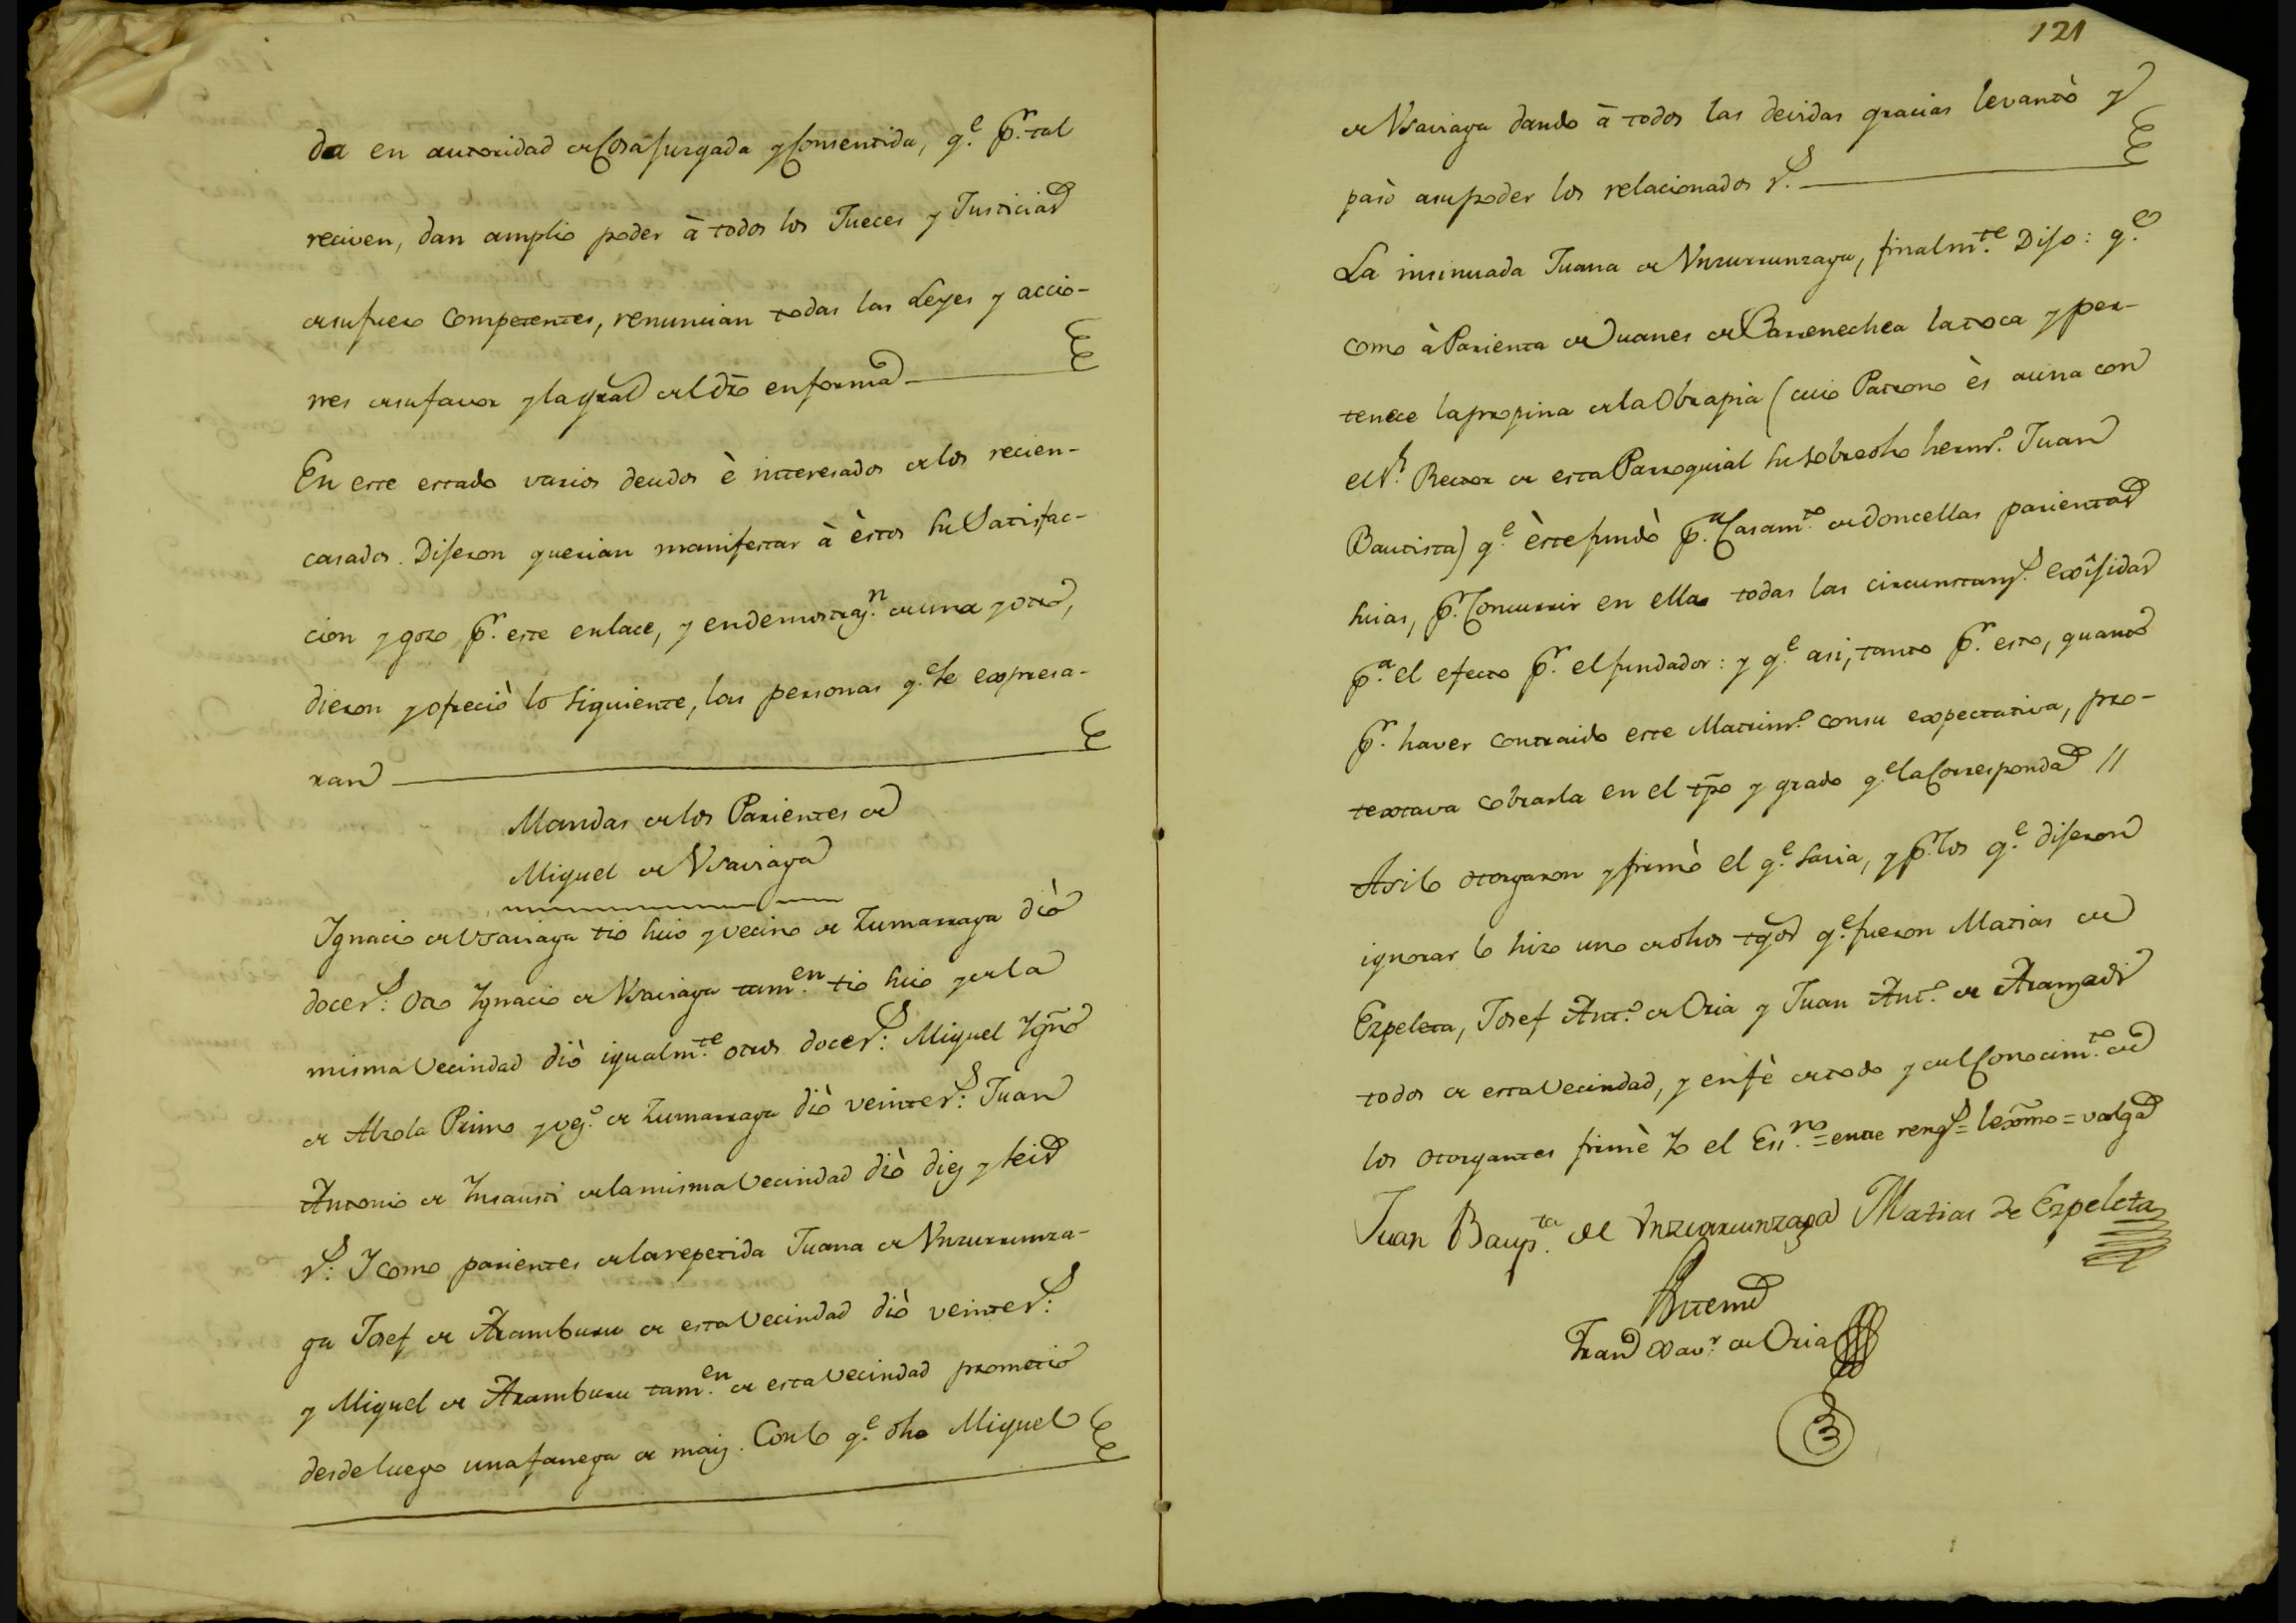 da en autoridad de Cosa juzgada y Consentida, q.e p.r tal
reciven, dan amplio poder à todos los Jueces y Justicias
de su fuero Competentes, renuncian todas las Leyes y accio-
nes de su favor y la gral del dro en forma
En este estado varios deudos è interesados de los recien-
casados. Dijeron querian manifestar à èstos su Satisfac-
cion y gozo p.r este enlace, y en demostraz.n de una y otro,
dieron y ofreciò lo siguiente, las personas q.e se expresa-
ran
Mandas de los Parientes de
Miguel de Vsaviaga
Ygnacio de Vsaviaga tio suio y vecino de Zumarraga diò
doce r.s: Otro Ygnacio de Vsaviaga tam.en tio suio y de la
misma Vecindad diò igualm.te otros doce r.s: Miguel Ygn.o
de Alzola Primo y vez.o de Zumarraga diò veinte r.s: Juan
Antonio de Ynsausti de la misma Vecindad diò diez y seis
r.s: Y como parientes de la repetida Juana de Vnzurrunza-
ga Josef de Aramburu de esta Vecindad diò veinte r.s:
y Miguel de Aramburu tam.en de esta Vecindad prometiò
desde luego una fanega de maiz. Con lo q.e dho Miguel
121
de Vsaviaga dando à todos las devidas gracias levantò y
pasò a su poder los relacionados r.s
La insinuada Juana de Vnzurrunzaga, finalm.te Dijo: q.e
como à Parienta de Juanes de Barrenechea la toca y per-
tenece la propina de la Obrapia (cuio Patrono ès a una con
el S.r Rector de esta Parroquial su sobredho herm.o Juan
Bautista) q.e èste fundò p.a Casam.to de doncellas parientas
suias, p.r Concurrir en ella todas las circunstanz.s exîjidas
p.a el efecto p.r el fundador: y q.e asi, tanto p.r esto, quanto
p.r haver contraido este Matrim.o con su expectativa, pro-
textava cobrarla en el tpo y grado q.e la Corresponda //
Asi lo otorgaron y firmò el q.e savia, y p.r los q.e dijeron
ignorar lo hizo uno de dhos tgos q.e fueron Matias de
Ezpeleta, Josef Ant.o de Oria y Juan Ant.o de Aranzadi
todos de esta Vecindad, y en fè de todo y del Conocim.to de
los otorgantes firmè Yo el Ess.no = entre reng.s = lexmo = valga
Juan Baup.ta de Vnzurrunzaga Matias de Ezpeleta
Antemi
Fran Xav.r de Oria